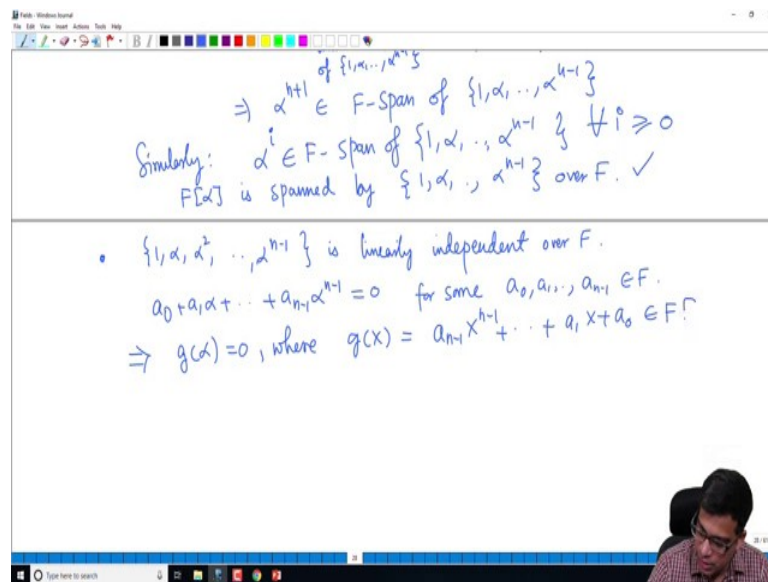 Fields - Windows Journal
File Edit View Insert Actions Tools Help
of {1,α,..,αⁿ⁻¹}
⇒ αⁿ⁺¹ ∈ F-span of {1,α,..,αⁿ⁻¹}
Similarly: αⁱ ∈ F-span of {1,α,..,αⁿ⁻¹} ∀ i ≥ 0
F[α] is spanned by {1,α,.,αⁿ⁻¹} over F. ✓
• {1,α,α²,..,αⁿ⁻¹} is linearly independent over F.
a₀+a₁α+..+aₙ₋₁αⁿ⁻¹=0 for some a₀,a₁,..,aₙ₋₁ ∈F.
⇒ g(α)=0, where g(x) = aₙ₋₁xⁿ⁻¹+..+a₁x+a₀ ∈ F[
28
Type here to search